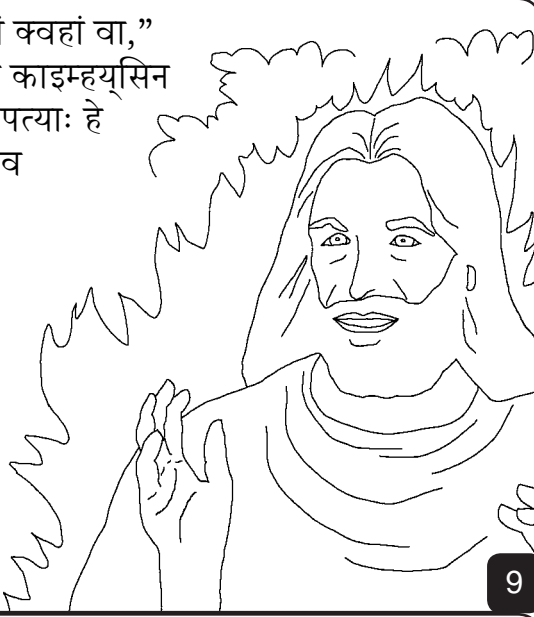 क्वहां वा,”
काइम्हय्‌सिन
पत्याः हे
व
9